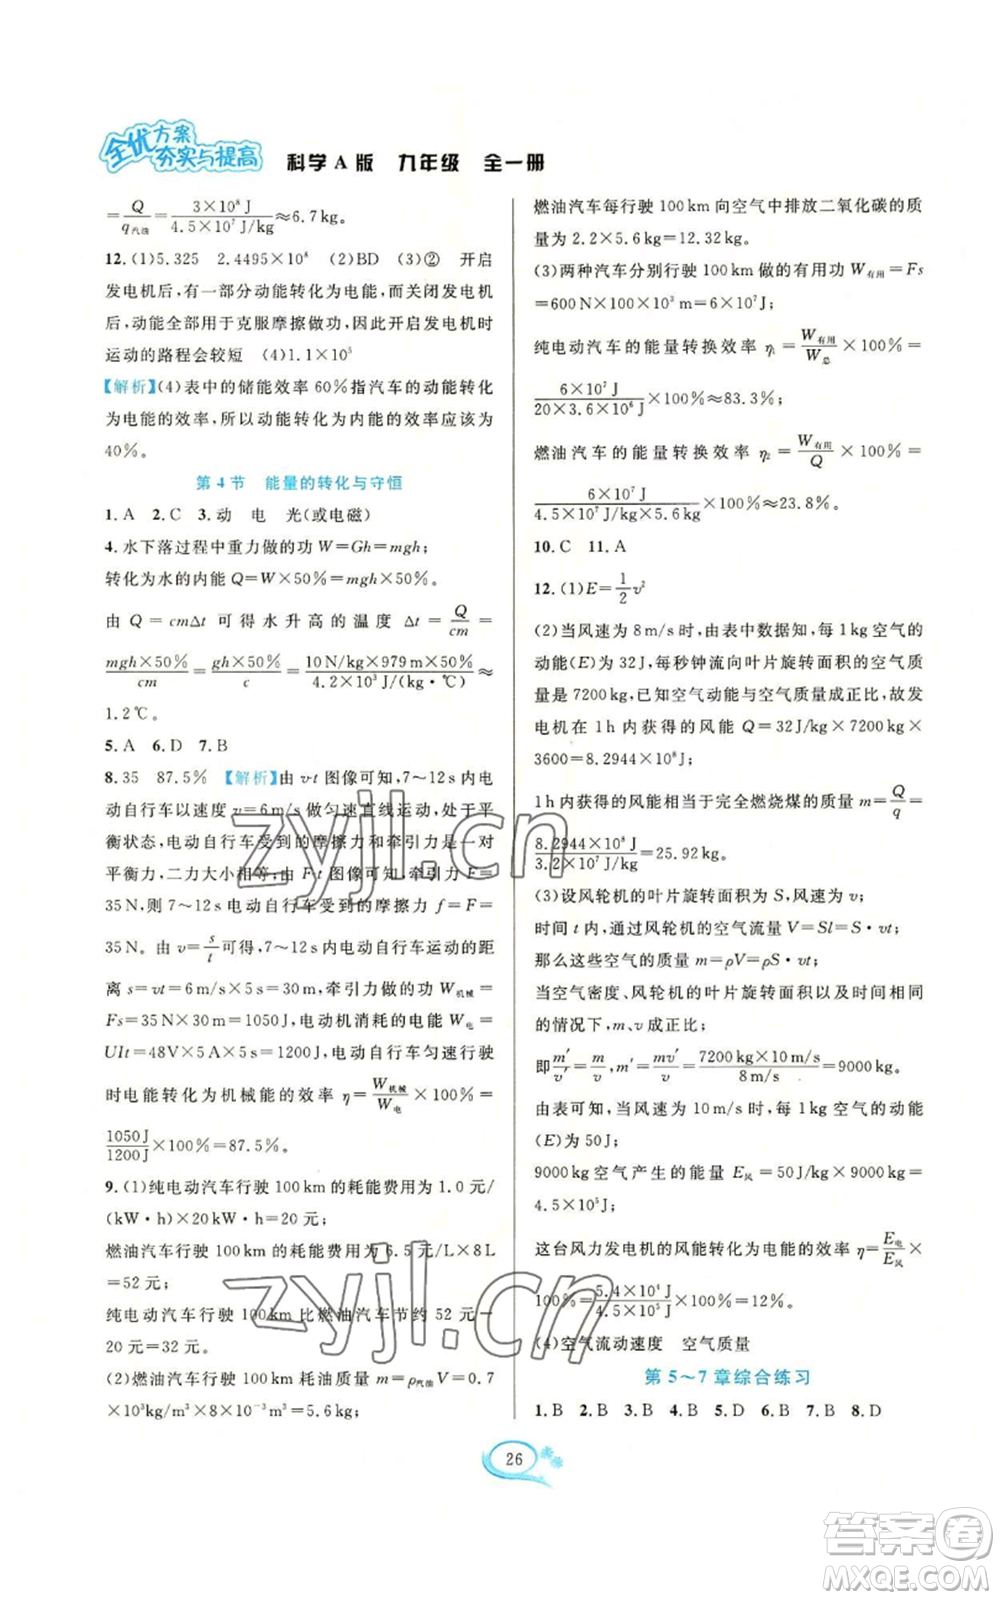 全优方案
夯实与提高
科学A版 九年级 全一册
=Q/q汽油=3×10⁸J/4.5×10⁷J/kg≈6.7kg。
12.(1)5.325 2.4495×10⁸ (2)BD (3)② 开启
发电机后,有一部分动能转化为电能,而关闭发电机
后,动能全部用于克服摩擦做功,因此开启发电机时
运动的路程会较短 (4)1.1×10⁵
【解析】(4)表中的储能效率60%指汽车的动能转化
为电能的效率,所以动能转化为内能的效率应该为
40%。
第4节 能量的转化与守恒
1.A 2.C 3.动 电 光(或电磁)
4.水下落过程中重力做的功W=Gh=mgh;
转化为水的内能Q=W×50%=mgh×50%。
由Q=cmΔt可得水升高的温度Δt=Q/cm=
mgh×50%/cm=gh×50%/c=10N/kg×979m×50%/4.2×10³J/(kg·℃)≈
1.2℃。
5.A 6.D 7.B
8.35 87.5% 【解析】由v-t图像可知,7~12s内电
动自行车以速度v=6m/s做匀速直线运动,处于平
衡状态,电动自行车受到的摩擦力和牵引力是一对平
衡力,二力大小相等;由F-t图像可知,牵引力F=
35N,则7~12s电动自行车受到的摩擦力f=F=
35N。由v=s/t可得,7~12s内电动自行车运动的距
离s=vt=6m/s×5s=30m,牵引力做的功W机械=
Fs=35N×30m=1050J,电动机消耗的电能W电=
UIt=48V×5A×5s=1200J,电动自行车匀速行驶
时电能转化为机械能的效率η=W机械/W电×100%=
1050J/1200J×100%=87.5%。
9.(1)纯电动汽车行驶100km的耗能费用为1.0元/
(kW·h)×20kW·h=20元;
燃油汽车行驶100km的耗能费用为6.5元/L×8L
=52元;
纯电动汽车行驶100km比燃油汽车节约52元-
20元=32元。
(2)燃油汽车行驶100km耗油质量m=ρ汽油V=0.7
×10³kg/m³×8×10⁻³m³=5.6kg;
燃油汽车每行驶100km向空气中排放二氧化碳的质
量为2.2×5.6kg=12.32kg。
(3)两种汽车分别行驶100km做的有用功W有用=Fs
=600N×100×10³m=6×10⁷J;
纯电动汽车的能量转换效率η₁=W有用/W总×100%=
6×10⁷J/20×3.6×10⁶J×100%≈83.3%;
燃油汽车的能量转换效率η₂=W有用/Q×100%=
6×10⁷J/4.5×10⁷J/kg×5.6kg×100%≈23.8%。
10.C 11.A
12.(1)E=1/2v²
(2)当风速为8m/s时,由表中数据知,每1kg空气的
动能(E)为32J,每秒钟流向叶片旋转面积的空气质
量是7200kg,已知空气动能与空气质量成正比,故发
电机在1h内获得的风能Q=32J/kg×7200kg×
3600=8.2944×10⁸J;
1h内获得的风能相当于完全燃烧煤的质量m=Q/q=
8.2944×10⁸J/3.2×10⁷J/kg=25.92kg。
(3)设风轮机的叶片旋转面积为S,风速为v;
时间t内流过风轮机的空气流量V=Sl=S·vt;
那么这些空气的质量m=ρV=ρS·vt;
当空气密度、风轮机的叶片旋转面积以及时间相同
的情况下,m、v成正比;
即m′/v′=m/v,m′=mv′/v=7200kg×10m/s/8m/s=9000kg。
由表可知,当风速为10m/s时,每1kg空气的动能
(E)为50J;
9000kg空气产生的能量E风=50J/kg×9000kg=
4.5×10⁵J;
这台风力发电机的风能转化为电能的效率η=E电/E风×
100%=5.4×10⁴J/4.5×10⁵J×100%=12%。
(4)空气流动速度 空气质量
第5~7章综合练习
1.B 2.B 3.B 4.B 5.D 6.B 7.B 8.D
26
zyjl.cn
zyjl.cn
答案卷
MXQE.COM